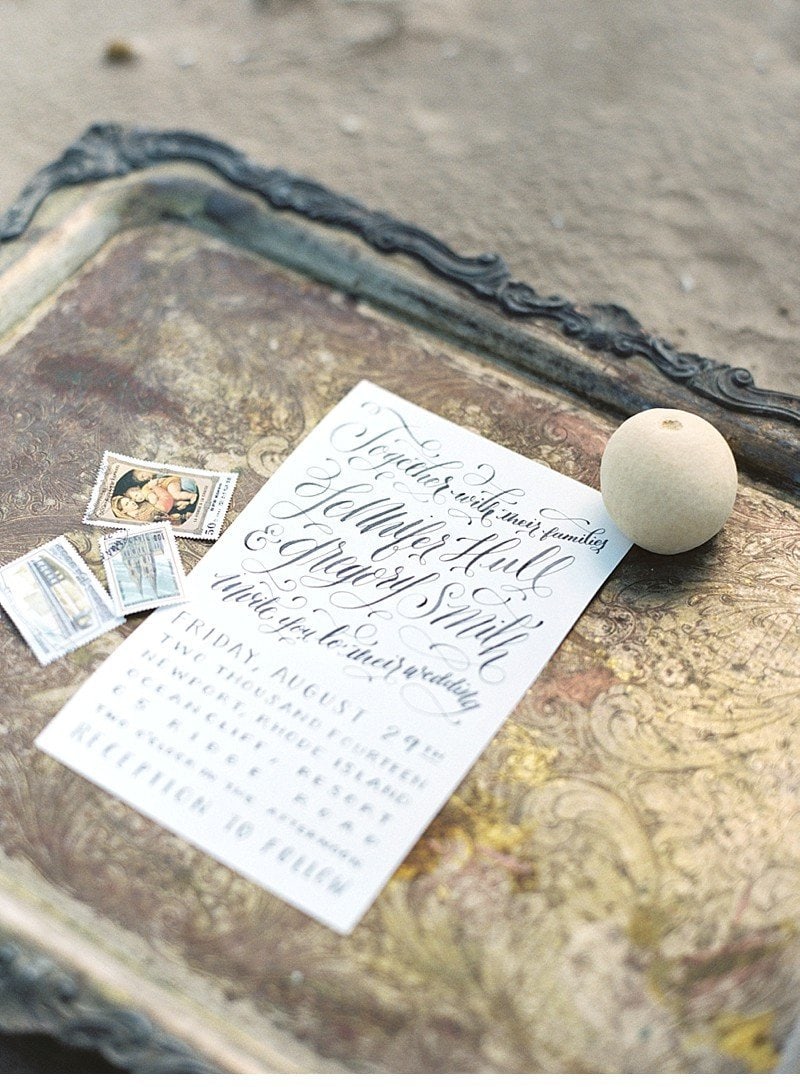 Together with their families
Jennifer Hull
& Gregory Smith
invite you to their wedding
FRIDAY, AUGUST 29TH
TWO THOUSAND FOURTEEN
NEWPORT, RHODE ISLAND
OCEANCLIFF RESORT
65 RIDGE ROAD
TWO O'CLOCK IN THE AFTERNOON
RECEPTION TO FOLLOW
50
100